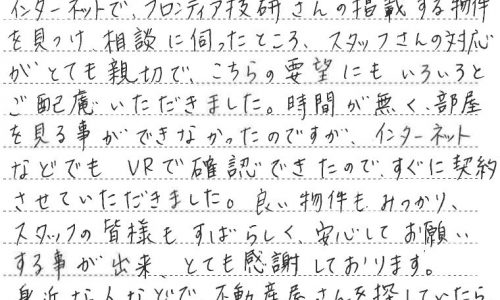 インターネットで、フロンティア技研さんの掲載する物件
を見つけ、相談に伺ったところ、スタッフさんの対応
がとても親切で、こちらの要望にもいろいろと
ご配慮いただきました。時間が無く、部屋
を見る事ができなかったのですが、インターネット
などでも VRで確認できたので、すぐに契約
させていただきました。良い物件もみつかり、
スタッフの皆様もすばらしく、安心してお願い
する事が出来、とても感謝しております。
身近な人などで、不動産屋さんを探していたら